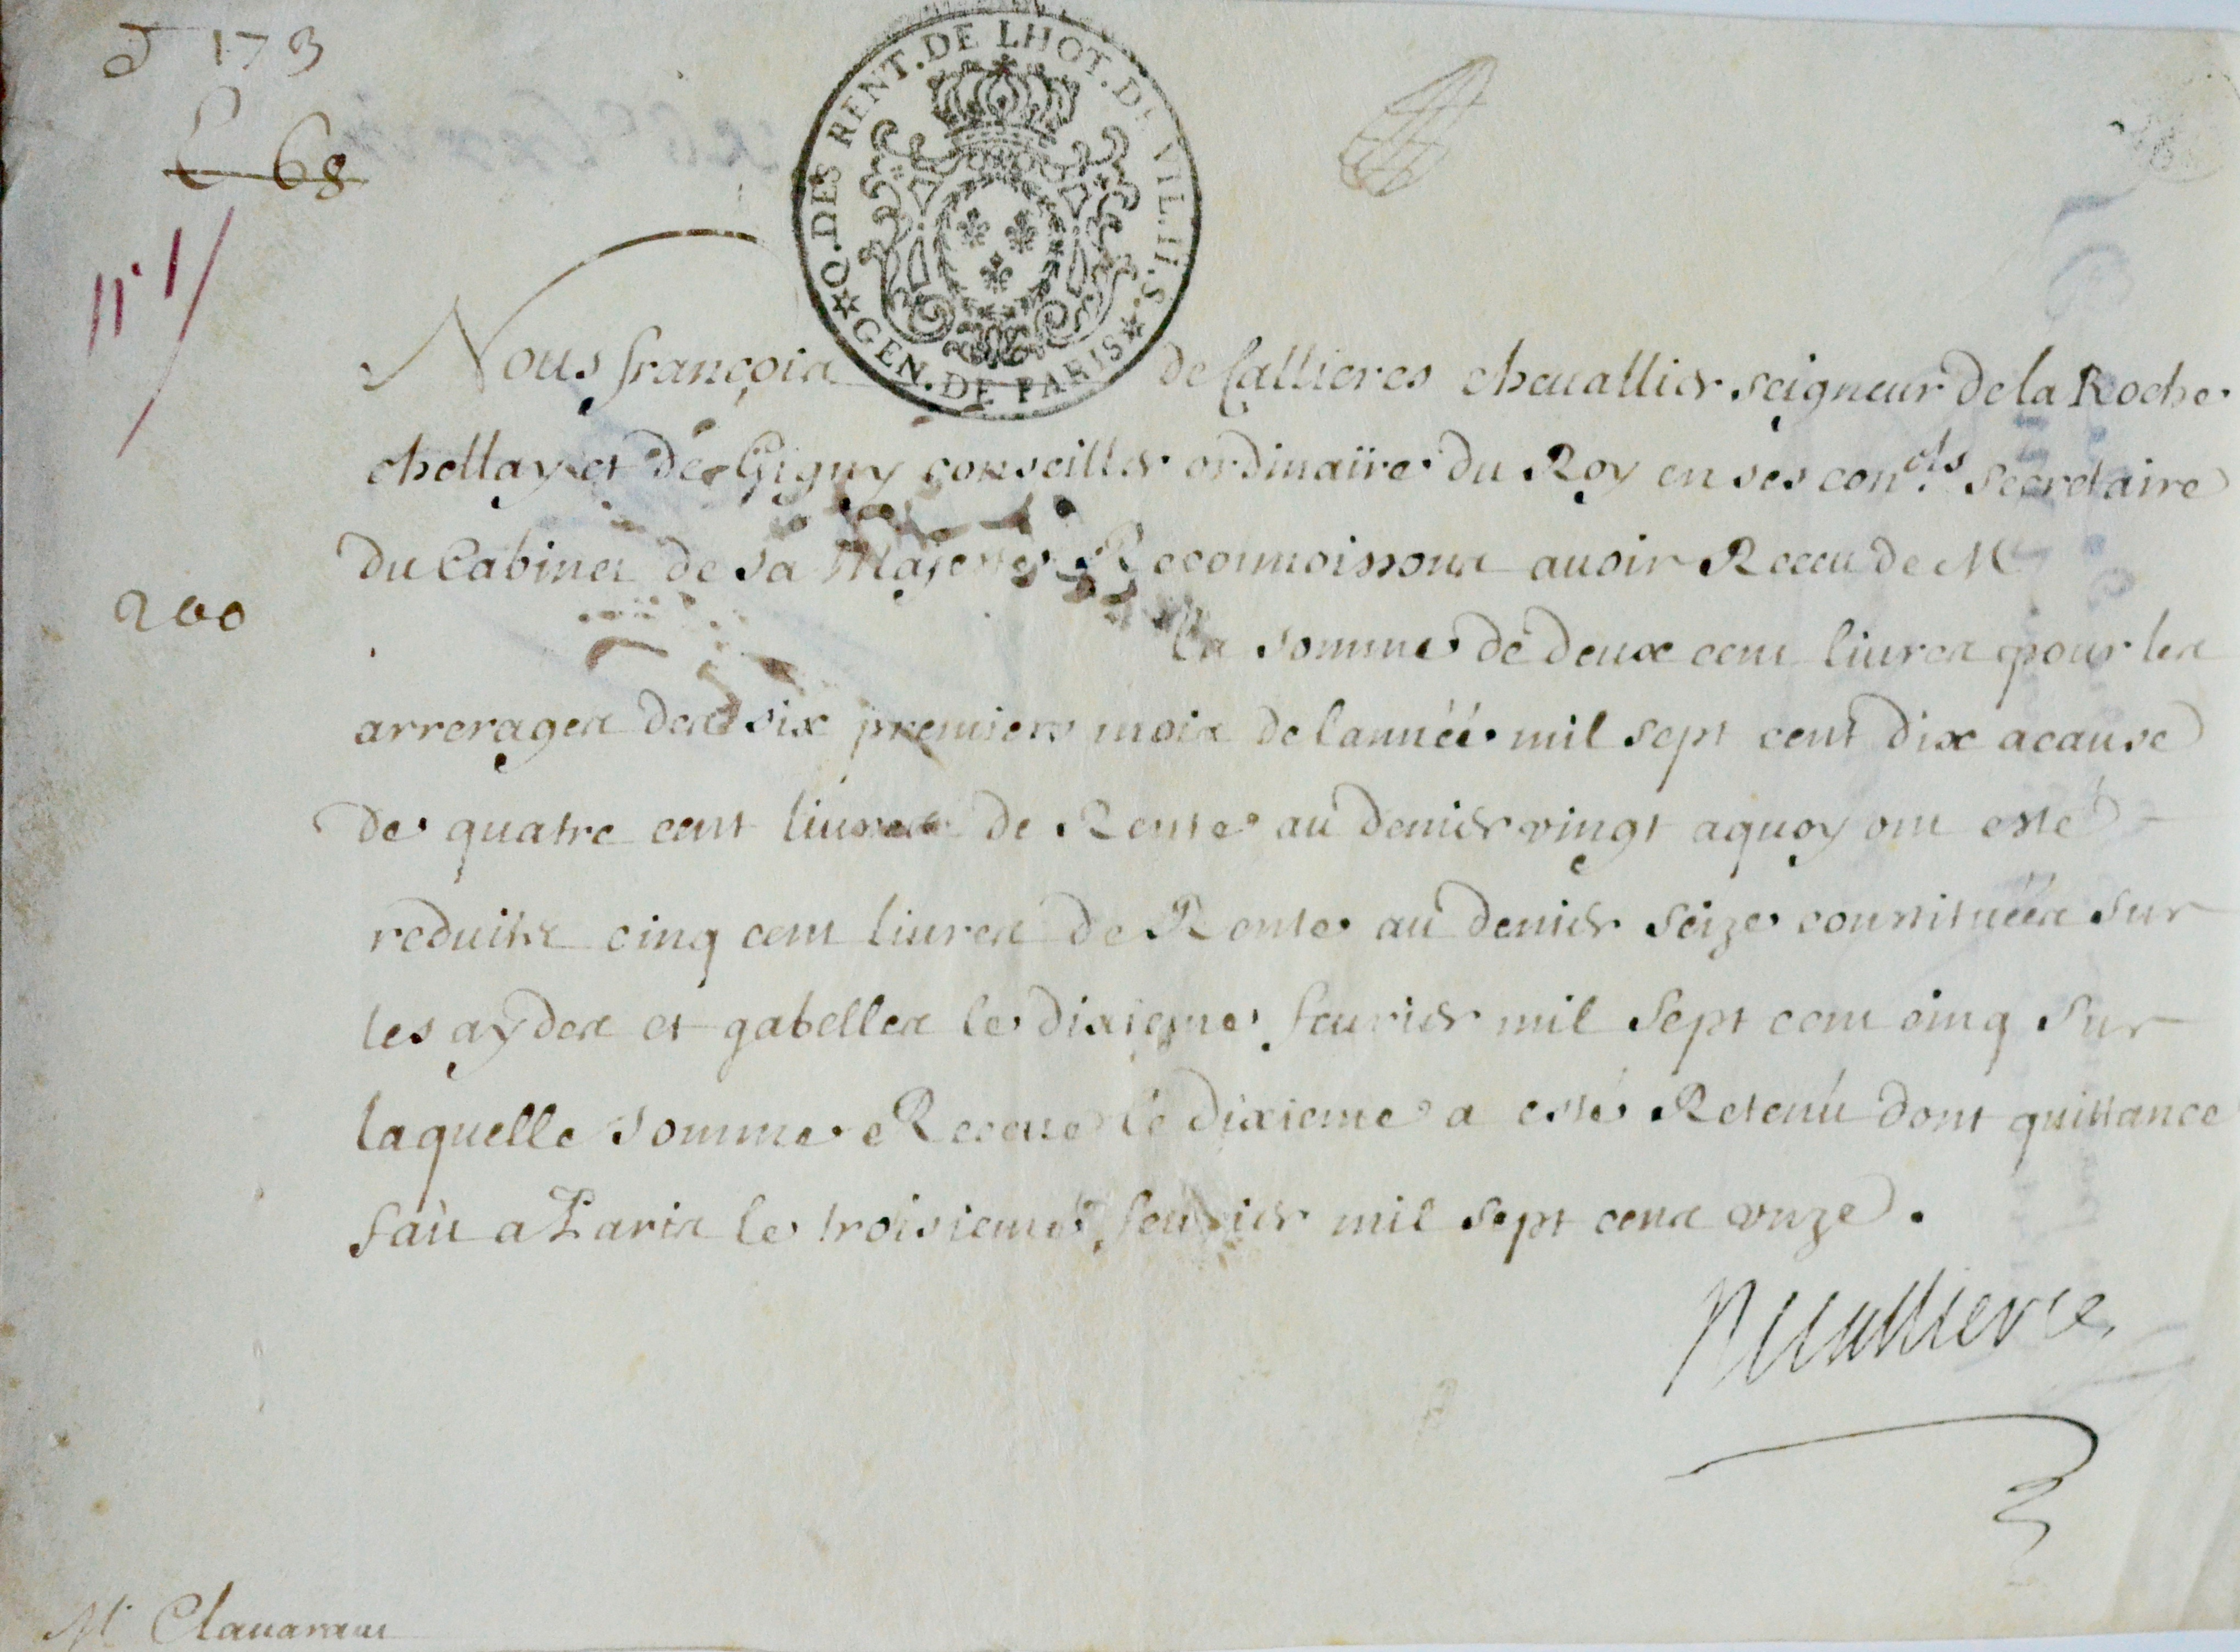 J 173
L 68
n° 1
Q. DES RENT. DE LHOT. DE VIL. II. S.
GEN. DE PARIS
Nous françois de Callieres cheuallier seigneur de la Roche
chellay et de Gigny conseiller ordinaire du Roy en ses con.els secretaire
du Cabinet de sa Majesté Reconnoissons auoir Receu de M
200
la somme de deux cent liures pour les
arrerages des six premiers mois de lannéé mil sept cent dix acause
de quatre cent liures de Rente au denier vingt aquoy ont esté
reduits cinq cent liures de Rente au denier seize constituéés sur
les aydes et gabelles le dixieme feurier mil sept cent cinq sur
laquelle somme Receue le dixieme a esté Retenú dont quittance
fait a Paris le troisieme feurier mil sept cens onze.
Decallieres
Mr Clauaraus